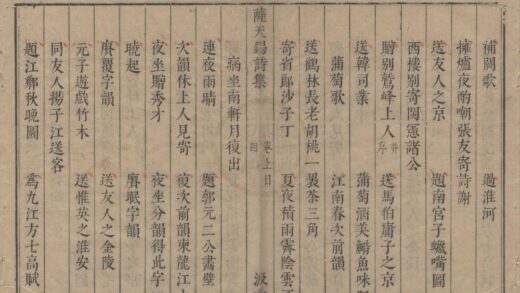 補闕歌　過淮河
擁爐夜酌朝張友寄詩謝
送友人之京　題南宮子蠟嘴圖
西樓別寄閩憲諸公
贈別鷲峰上人并序　送馬伯庸子之京
送韓司業　蒲萄酒美鰣魚味
蒲萄歌　江南春次前韻
送鶴林長老胡桃一裹茶三角
寄省郎沙子丁　夏夜積雨霽陰雲
薩天錫詩集　卷上目　四　汲
病坐南軒月復出
連夜雨晴　題郭元二公書壁
次韻休上人見寄　復次前韻柬龍江上
夜坐贈秀才　夜坐分韻得此字
曉起　賡眠字韻
賡覆字韻　送友人之金陵
元子遊戲竹木　送惟英之淮安
同友人揚子江送客
題江鄉秋晚圖　為九江方七高賦